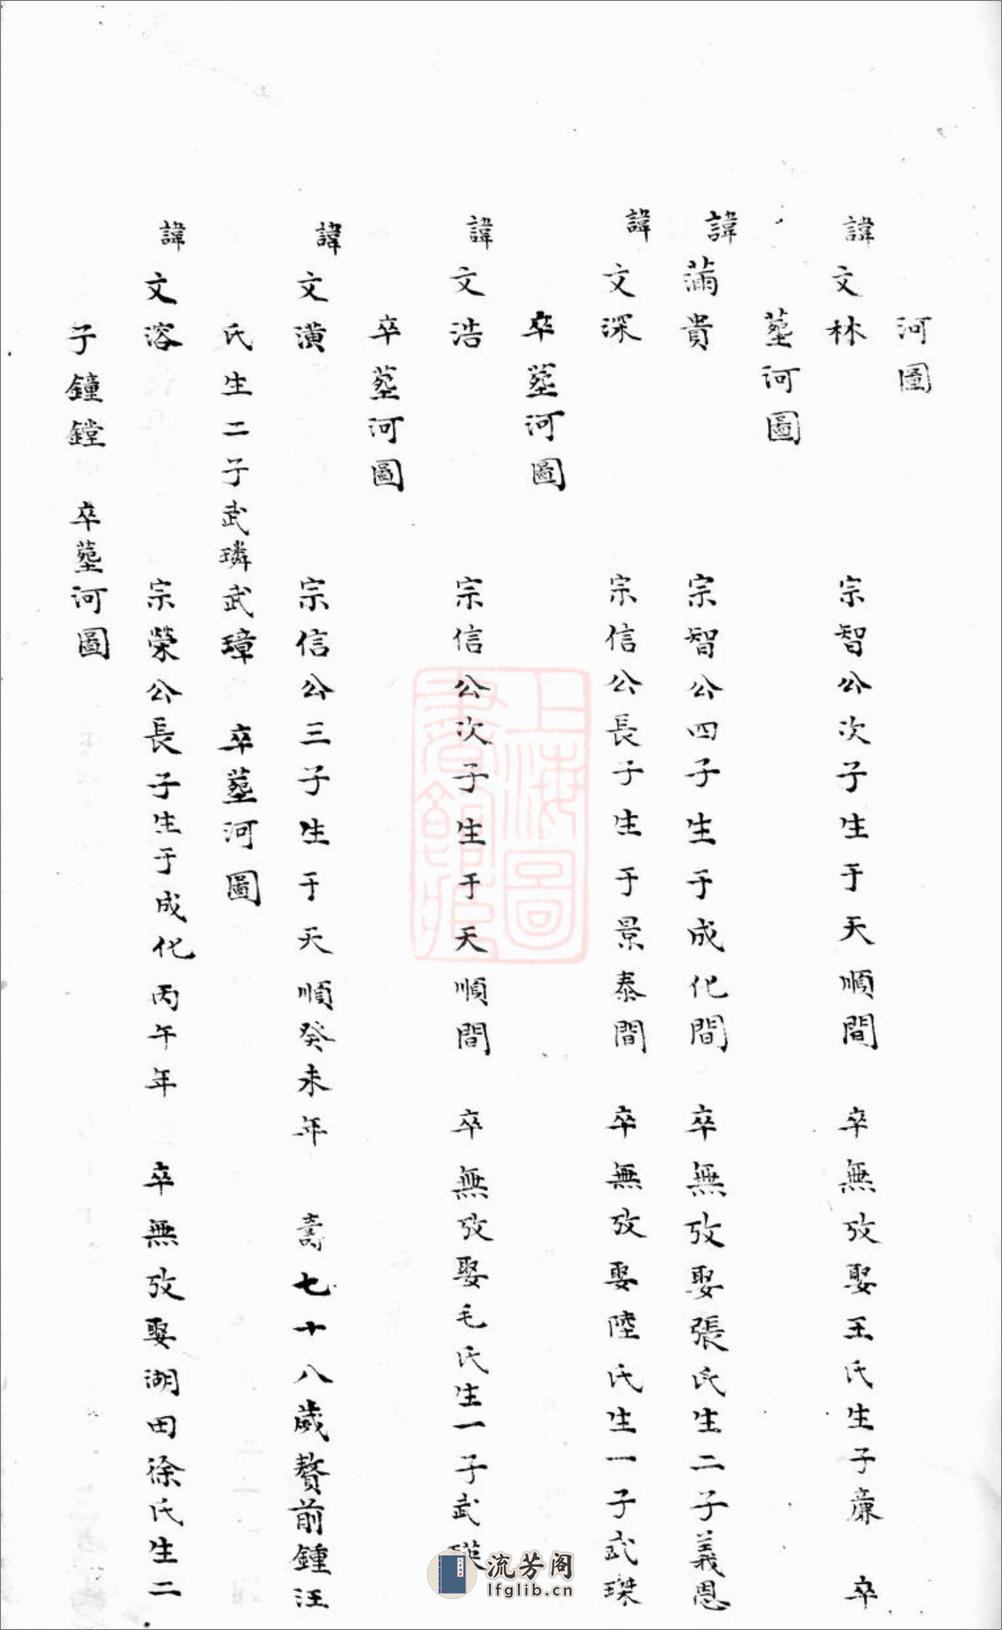 河圖
諱文林 宗智公次子生于天順間 卒無攷娶王氏生子廉 卒
塟河圖
諱滿貴 宗智公四子生于成化間 卒無攷娶張氏生二子義恩
諱文深 宗信公長子生于景泰間 卒無攷娶陸氏生一子武琛
卒塟河圖
諱文浩 宗信公次子生于天順間 卒無攷娶毛氏生一子武瑛
卒塟河圖
諱文潢 宗信公三子生于天順癸未年 壽七十八歲贅前鍾汪
氏生二子武璘武璋 卒塟河圖
諱文溶 宗榮公長子生于成化丙午年 卒無攷娶湖田徐氏生二
子鐘鏜 卒塟河圖
上海圖
書館藏
流芳阁
lfglib.cn